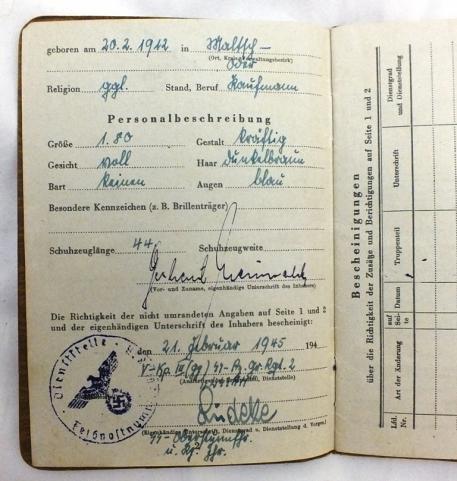 geboren am 20.2.1912 in Maltsch-
(Ort, Kreis, Verwaltungsbezirk)
Oder
Religion ggl. Stand, Beruf Kaufmann
Personalbeschreibung
Größe 1.80 Gestalt kräftig
Gesicht voll Haar dunkelbraun
Bart keinen Augen blau
Besondere Kennzeichen (z. B. Brillenträger)
Schuhzeuglänge 44 Schuhzeugweite
Gerhard
(Vor- und Zuname, eigenhändige Unterschrift des Inhabers)
Die Richtigkeit der nicht umrandeten Angaben auf Seite 1 und 2
und der eigenhändigen Unterschrift des Inhabers bescheinigt:
den 21. Februar 1945 194
Dienststelle
Feldpostnummer
(Eigenhändige Unterschrift, Dienstgrad u. Dienststellung d. Vorges.)
u. Kp. Fhr.
2
Bescheinigungen
über die Richtigkeit der Zusätze und Berichtigungen auf Seite 1 und 2
Lfd. Nr.
Art der Änderung
auf Seite
Datum
Truppenteil
Unterschrift
Dienstgrad
und Dienststellung